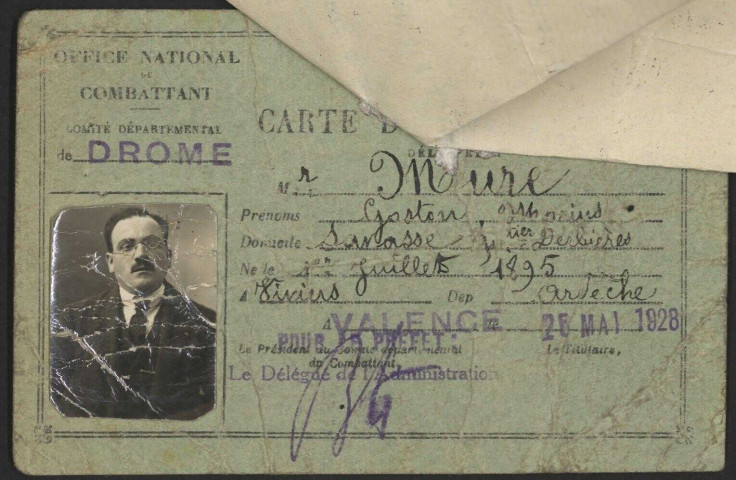 OFFICE NATIONAL
DU
COMBATTANT
COMITÉ DÉPARTEMENTAL
de DROME
CARTE D
DÉLIVRÉE
Mr Mure
Prenoms Gaston, Marius
Domicile Savasse, qtier Derbières
Ne le 1er Juillet 1895
A Viviers Dep Ardèche
A VALENCE le 26 MAI 1928
POUR LE PREFET:
Le Président du Comité départemental
du Combattant,
Le Titulaire,
Le Délégué de l'Administration